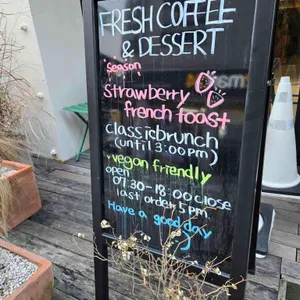 FRESH COFFEE
& DESSERT
Season
strawberry
french toast
classicbrunch
(until 3:00pm)
vegan friendly
open
07:30-18:00 close
last order 5pm
Have a good day